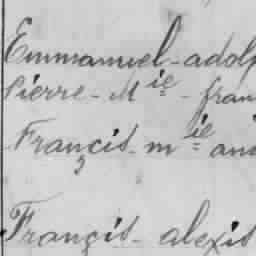 Emmanuel-adolp
Pierre-Mie-fran
Françis-mie and
Françis-alexis